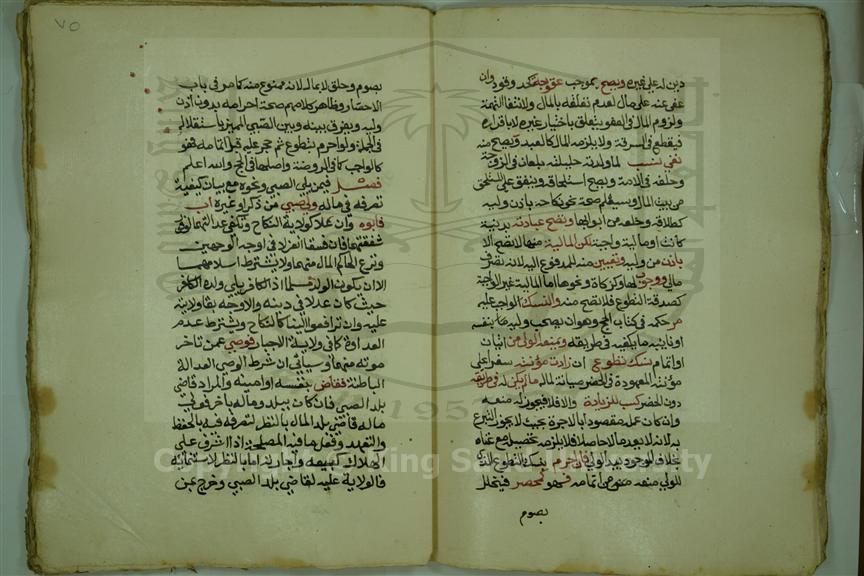 دين له على غيره ويصح بموجب عقوبة كحد وقود وان
عفي عنه على مال لعدم تعلقه بالمال ولانتفاء التهمة
ولزوم المال في العفو يتعلق باختيار غيره لا باقراره
فيقطع في السرقة ولا يلزمه المال كالعبد ويصح منه
نفي نسب لما ولدته حليلته بلعان في الزوجة
وحلفه في الامة ويصح استلحاقه وينفق على المستلحق
من بيت المال وسيعلم صحة نحو نكاحه باذن وليه
كطلاقه وخلعه من ابوابها وتصح عبادته بدنية
كانت او مالية واجبة لكن المالية منها لا تصح الا
باذن من وليه وتعيين منه للمدفوع اليه لانه تصرف
مالي ووجوب لها وكزكاة ونحوها اما المالية غير الواجبة
كصدقة التطوع فلا تصح منه والنسك الواجب عليه
مر حكمه في كتاب الحج وهو ان يصحب وليه ما بنفسه
او نائبه ما يكفيه في طريقه ويمنعه الولي من اتيان
او اتمام نسك تطوع ان زادت مؤنته سفرا على
مؤنته المعهودة في الحضر صيانة لماله ما لم يكن له في طريقه
دون الحضر كسب للزيادة والا فلا فيجوز له منعه
وان كان عمله مقصودا بالاجرة بحيث لا يجوز التبرع
به لانه لا يعد مالا حاصلا فلا يلزمه تحصيله مع غناه
بخلاف الموجود بيد الولي فان احرم بنسك التطوع الذي
للولي منعه منه ومن اتمامه فهو كمحصر فيتحلل
بصوم
٧٥
بصوم وحلق لا بمال لانه ممنوع منه كما مر في باب
الاحصار وظاهر كلامهم صحة احرامه بدون اذن
وليه ويفرق بينه وبين الصبي المميز باستقلاله
في الجملة ولو احرم بتطوع ثم حجر عليه قبل اتمامه فهو
كالواجب كما في الروضة واصلها في الحج والله اعلم
فصل فيمن يلي الصبي ونحوه مع بيان كيفية
تصرفه في ماله ولي صبي من ذكر او غيره اب
فابوه وان علا كولاية النكاح وتكفي عدالتهما الظاهرة لوفور
شفقتهما فان فسقا انعزلا في اوجه الوجهين
ونزع الحاكم المال منهما ولا يشترط اسلامهما
الا ان يكون الولد مسلما اذ الكافر يلي ولده الكافر
حيث كان عدلا في دينه والاوجه بقا ولايته
عليه وان ترافعوا الينا كالنكاح ويشترط عدم
العداوة كما في ولاية الاجبار فوصي عمن تاخر
موته منهما وسياتي ان شرط الوصي العدالة
الباطنة فقاض بنفسه او امينه والمراد قاضي
بلد الصبي فان كان ببلد وماله باخر فولي
ماله قاضي بلد المال بالنظر لتصرفه فيه بالحفظ
والتعهد وفعل ما فيه المصلحة اذا اشرف على
الهلاك كبيعه واجارته اما بالنظر لاستنمائه
فالولاية عليه لقاضي بلد الصبي وخرج عمن
Copyright © King Saud University
1957